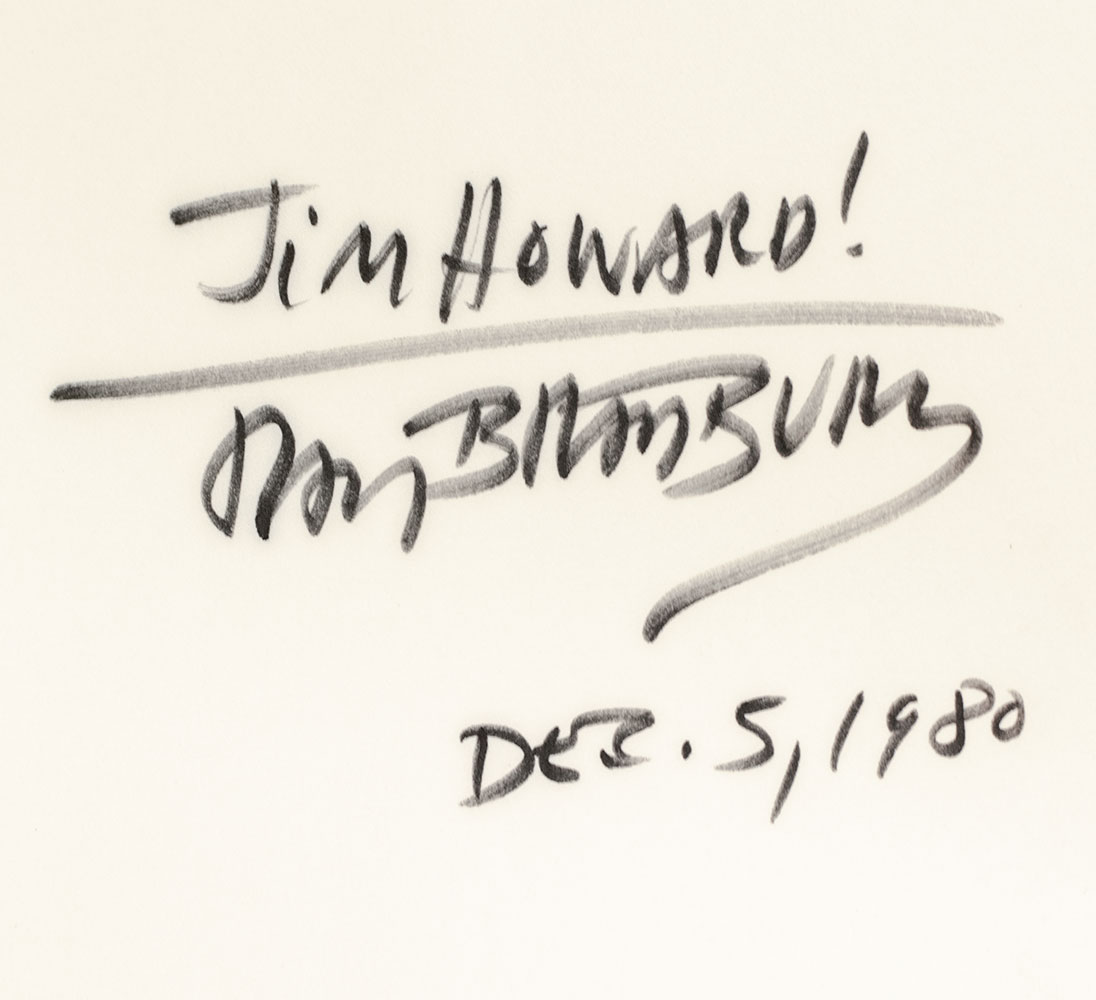 Jim HOWARD!
RAY BRADBURY
DEC. 5, 1980